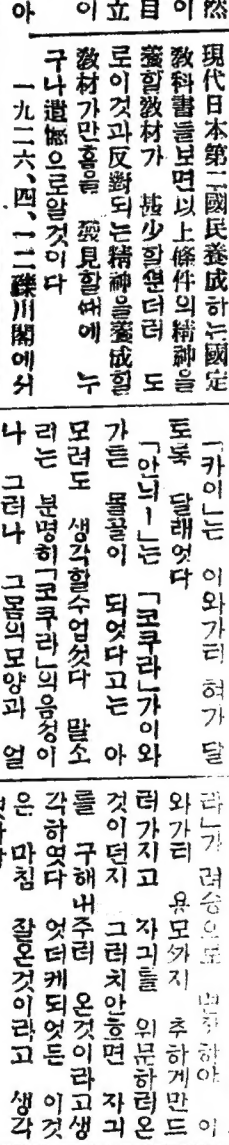 然
이
目
立
이
아
現代日本第二國民養成하는國定
敎科書를보면以上條件의精神을
養할敎材가 甚少할뿐더러 도
로이것과反對되는精神을養成할
敎材가만흠을 發見할때에 누
구나遺憾으로알것이다
一九二六、四、一二礫川閣에서
「카이」는 이와가티 혀가 달
토록 달래엿다
「안늬ー」는 「코쿠라」가이와
가튼 몰꼴이 되엿다고는 아
모려도 생각할수업섯다 말소
리는 분명히「코쿠라」의음성이
나 그러나 그몸의모양과 얼
라」가 려승으로 변하야 이
와가티 용모까지 추하게만드
러가지고 자긔를 위문하러온
것이던지 그러치안흐면 자긔
를 구해내주러 온것이라고생
각하엿다 엇더케되엿든 이것
은 마침 잘온것이라고 생각